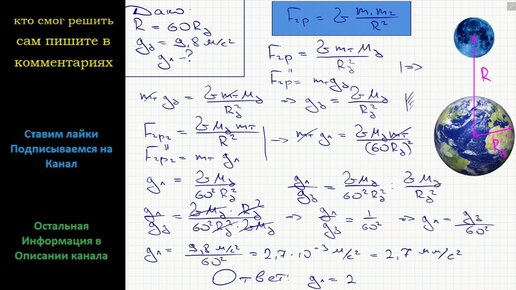 кто смог решить
сам пишите в
комментариях
Ставим лайки
Подписываемся на
Канал
Остальная
Информация в
Описании канала
Дано:
R = 60R₃
g₃ = 9,8 м/с²
gл - ?
Fгр = G m₁m₂/R²
Fгр = G mт M₃/R₃²
Fгр = mт g₃
|=>
mт g₃ = G mт M₃/R₃² => g₃ = G M₃/R₃²
Fгр₂ = G M₃ mт/R² => mт gл = G M₃ mт/(60R₃)²
Fгр₂ = mт gл
gл = G M₃/60²R₃² gл/g₃ = G M₃/60²R₃² : G M₃/R₃²
gл/g₃ = G M₃ · R₃²/60²R₃² · G M₃ => gл/g₃ = 1/60² => gл = g₃/60²
gл = 9,8 м/с²/60² = 2,7 · 10⁻³ м/с² = 2,7 мм/с²
Ответ: gл = 2
R
R₃